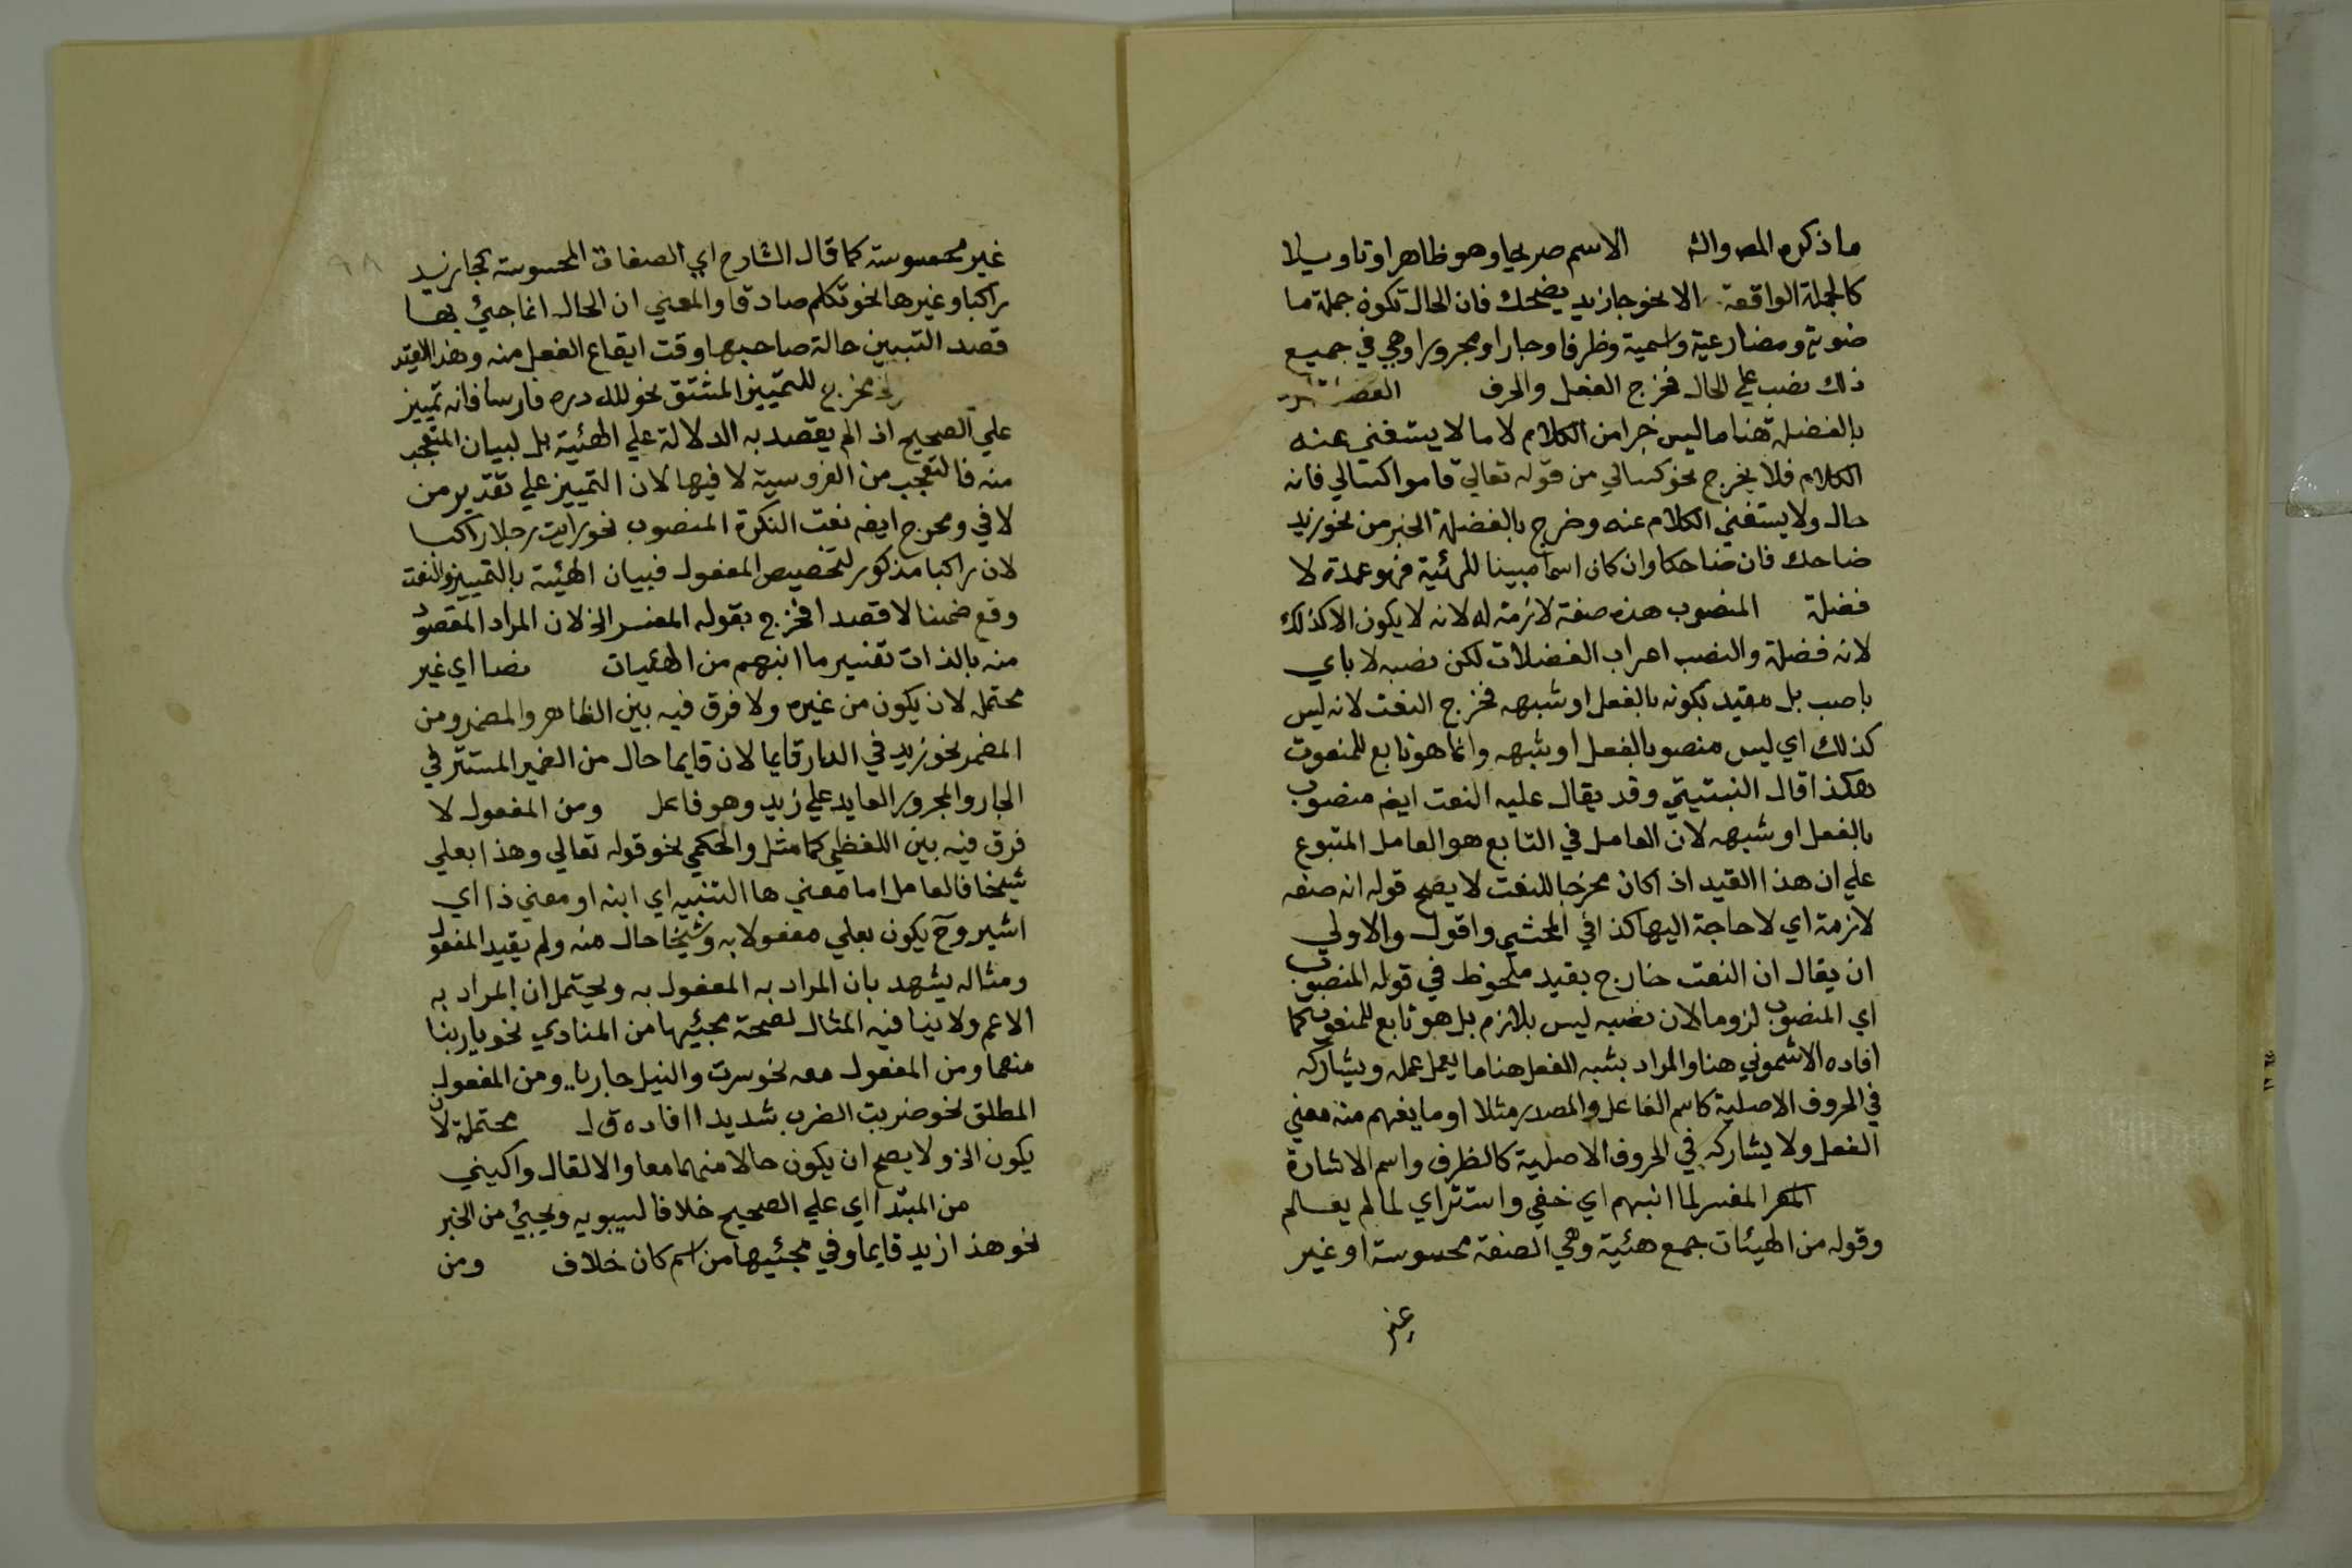 ما ذكره المص والش الاسم صريحا وهو ظاهر او تاويلا
كالجملة الواقعة الا نحو جا زيد يضحك فان الحال تكون جملة ما
ضوية ومضارعية واسمية وظرفا وجارا ومجرورا وهي في جميع
ذلك نصب علي الحال فخرج الفعل والحرف
بالفضلة هنا ما ليس جزا من الكلام لا ما لا يستغني عنه
الكلام فلا يخرج نحو كسالي من قوله تعالي قاموا كسالي فانه
حال ولا يستغني الكلام عنه وخرج بالفضلة الخبر من نحو زيد
ضاحك فان ضاحكا وان كان اسما مبينا للهئية فهو عمدة لا
فضلة المنصوب هذه صفة لازمة له لانه لا يكون الا كذلك
لانه فضلة والنصب اعراب الفضلات لكن نصبه لا باي
ناصب بل مقيد بكونه بالفعل او شبهه فخرج النعت لانه ليس
كذلك اي ليس منصوبا بالفعل او شبهه وانما هو تابع للمنعوت
هكذا قال النبتيتي وقد يقال عليه النعت ايضه منصوب
بالفعل او شبهه لان العامل في التابع هو العامل المتبوع
علي ان هذا القيد اذا كان مخرجا للنعت لا يصح قوله انه صفه
لازمة اي لا حاجة اليها كذا في المحشي واقول والاولي
ان يقال ان النعت خارج بقيد ملحوظ في قوله المنصوب
اي المنصوب لزوما لان نصبه ليس بلازم بل هو تابع للمنعوت كما
افاده الاشموني هنا والمراد بشبه الفعل هنا ما يعمل عمله ويشاركه
في الحروف الاصلية كاسم الفاعل والمصدر مثلا او ما يفهم منه معني
الفعل ولا يشاركه في الحروف الاصلية كالظرف واسم الاشارة
المفسر لما انبهم اي خفي واستتر اي لما لم يعلم
وقوله من الهيئات جمع هئية وهي الصفة محسوسة او غير
غير
غير محسوسته كما قال الشارح اي الصفات المحسوسة كجا زيد
راكبا وغيرها نحو تكلم صادقا والمعني ان الحال انما جيئ بها
قصد التبيين حالة صاحبها وقت ايقاع الفعل منه وهذا القيد
مخرج للتمييز المشتق نحو لله دره فارسا فانه تمييز
علي الصحيح اذ لم يقصد به الدلالة علي الهئية بل لبيان المتعجب
منه فالتعجب من الفروسية لا فيها لان التمييز علي تقدير من
لا في ومخرج ايضه نعت النكرة المنصوب نحو رايت رجلا راكبا
لان راكبا مذكور لتخصيص المفعول فبيان الهئية بالتمييز والنعت
وقع ضمنا لا قصدا فخرج بقوله المفسر الخ لان المراد المقصود
منه بالذات تفسير ما انبهم من الهئيات نصا اي غير
محتمل لان يكون من غيره ولا فرق فيه بين الظاهر والمضمر ومن
المضمر نحو زيد في الدار قايما لان قايما حال من الضمير المستتر في
الجار والمجرور العايد علي زيد وهو فاعل ومن المفعول لا
فرق فيه بين اللفظي كما مثل والحكمي نحو قوله تعالي وهذا بعلي
شيخا فالعامل اما معني ها التنبيه اي انبه او معني ذا اي
اشير وح يكون بعلي مفعولا به وشيخا حال منه ولم يقيد المفعول
ومثاله يشهد بان المراد به المفعول به ويحتمل ان المراد به
الاعم ولا ينافيه المثال لصحة مجئيها من المنادي نحو يا ربنا
منعما ومن المفعول معه نحو سرت والنيل جاريا ومن المفعول
المطلق نحو ضربت الضرب شديدا افاده ق ل محتملة لان
يكون الخ ولا يصح ان يكون حالا منهما معا والا لقال راكبيني
من المبتدا اي علي الصحيح خلافا لسيبويه ويجيئ من الخبر
نحو هذا زيد قايما وفي مجئيها من اسم كان خلاف ومن